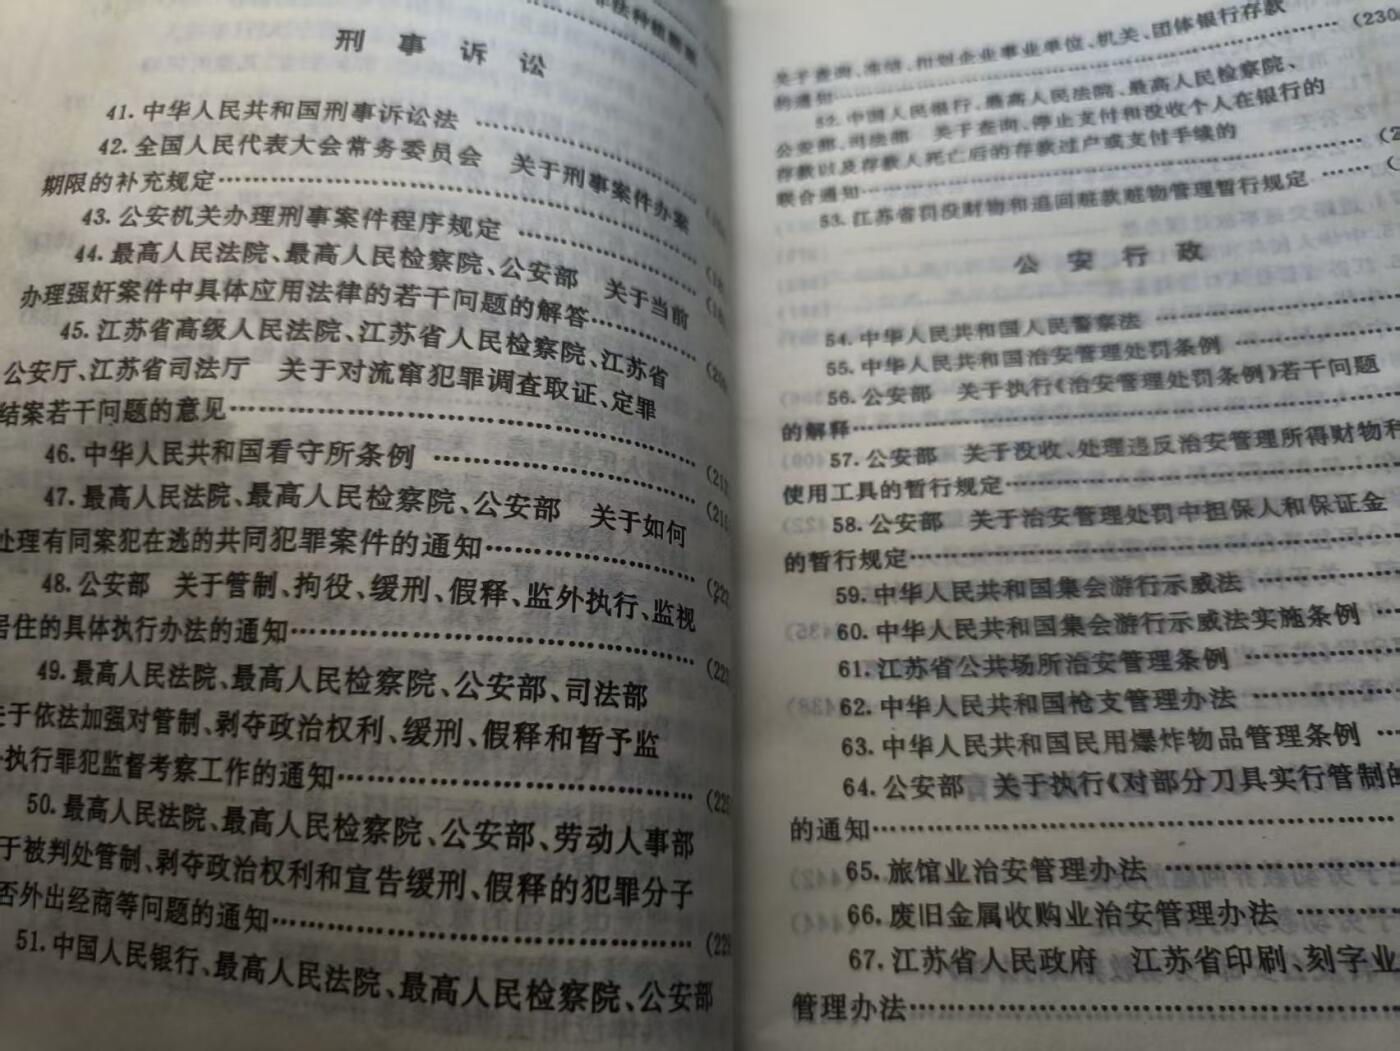 刑事诉讼
41.中华人民共和国刑事诉讼法
42.全国人民代表大会常务委员会 关于刑事案件办案
期限的补充规定
43.公安机关办理刑事案件程序规定
44.最高人民法院、最高人民检察院、公安部 关于当前
办理强奸案件中具体应用法律的若干问题的解答
45.江苏省高级人民法院、江苏省人民检察院、江苏省
公安厅、江苏省司法厅 关于对流窜犯罪调查取证、定罪
结案若干问题的意见
46.中华人民共和国看守所条例
47.最高人民法院、最高人民检察院、公安部 关于如何
处理有同案犯在逃的共同犯罪案件的通知
48.公安部 关于管制、拘役、缓刑、假释、监外执行、监视
居住的具体执行办法的通知
49.最高人民法院、最高人民检察院、公安部、司法部
关于依法加强对管制、剥夺政治权利、缓刑、假释和暂予监
执行罪犯监督考察工作的通知
50.最高人民法院、最高人民检察院、公安部、劳动人事部
于被判处管制、剥夺政治权利和宣告缓刑、假释的犯罪分子
否外出经商等问题的通知
51.中国人民银行、最高人民法院、最高人民检察院、公安部
关于查询、冻结、扣划企业事业单位、机关、团体银行存款
的通知 (230
52.中国人民银行、最高人民法院、最高人民检察院、
公安部、司法部 关于查询、停止支付和没收个人在银行的
存款以及存款人死亡后的存款过户或支付手续的
联合通知
53.江苏省罚没财物和追回赃款赃物管理暂行规定
公安行政
54.中华人民共和国人民警察法
55.中华人民共和国治安管理处罚条例
56.公安部 关于执行《治安管理处罚条例》若干问题
的解释
57.公安部 关于没收、处理违反治安管理所得财物和
使用工具的暂行规定
58.公安部 关于治安管理处罚中担保人和保证金
的暂行规定
59.中华人民共和国集会游行示威法
60.中华人民共和国集会游行示威法实施条例
61.江苏省公共场所治安管理条例
62.中华人民共和国枪支管理办法
63.中华人民共和国民用爆炸物品管理条例
64.公安部 关于执行《对部分刀具实行管制的
的通知
65.旅馆业治安管理办法
66.废旧金属收购业治安管理办法
67.江苏省人民政府 江苏省印刷、刻字业
管理办法